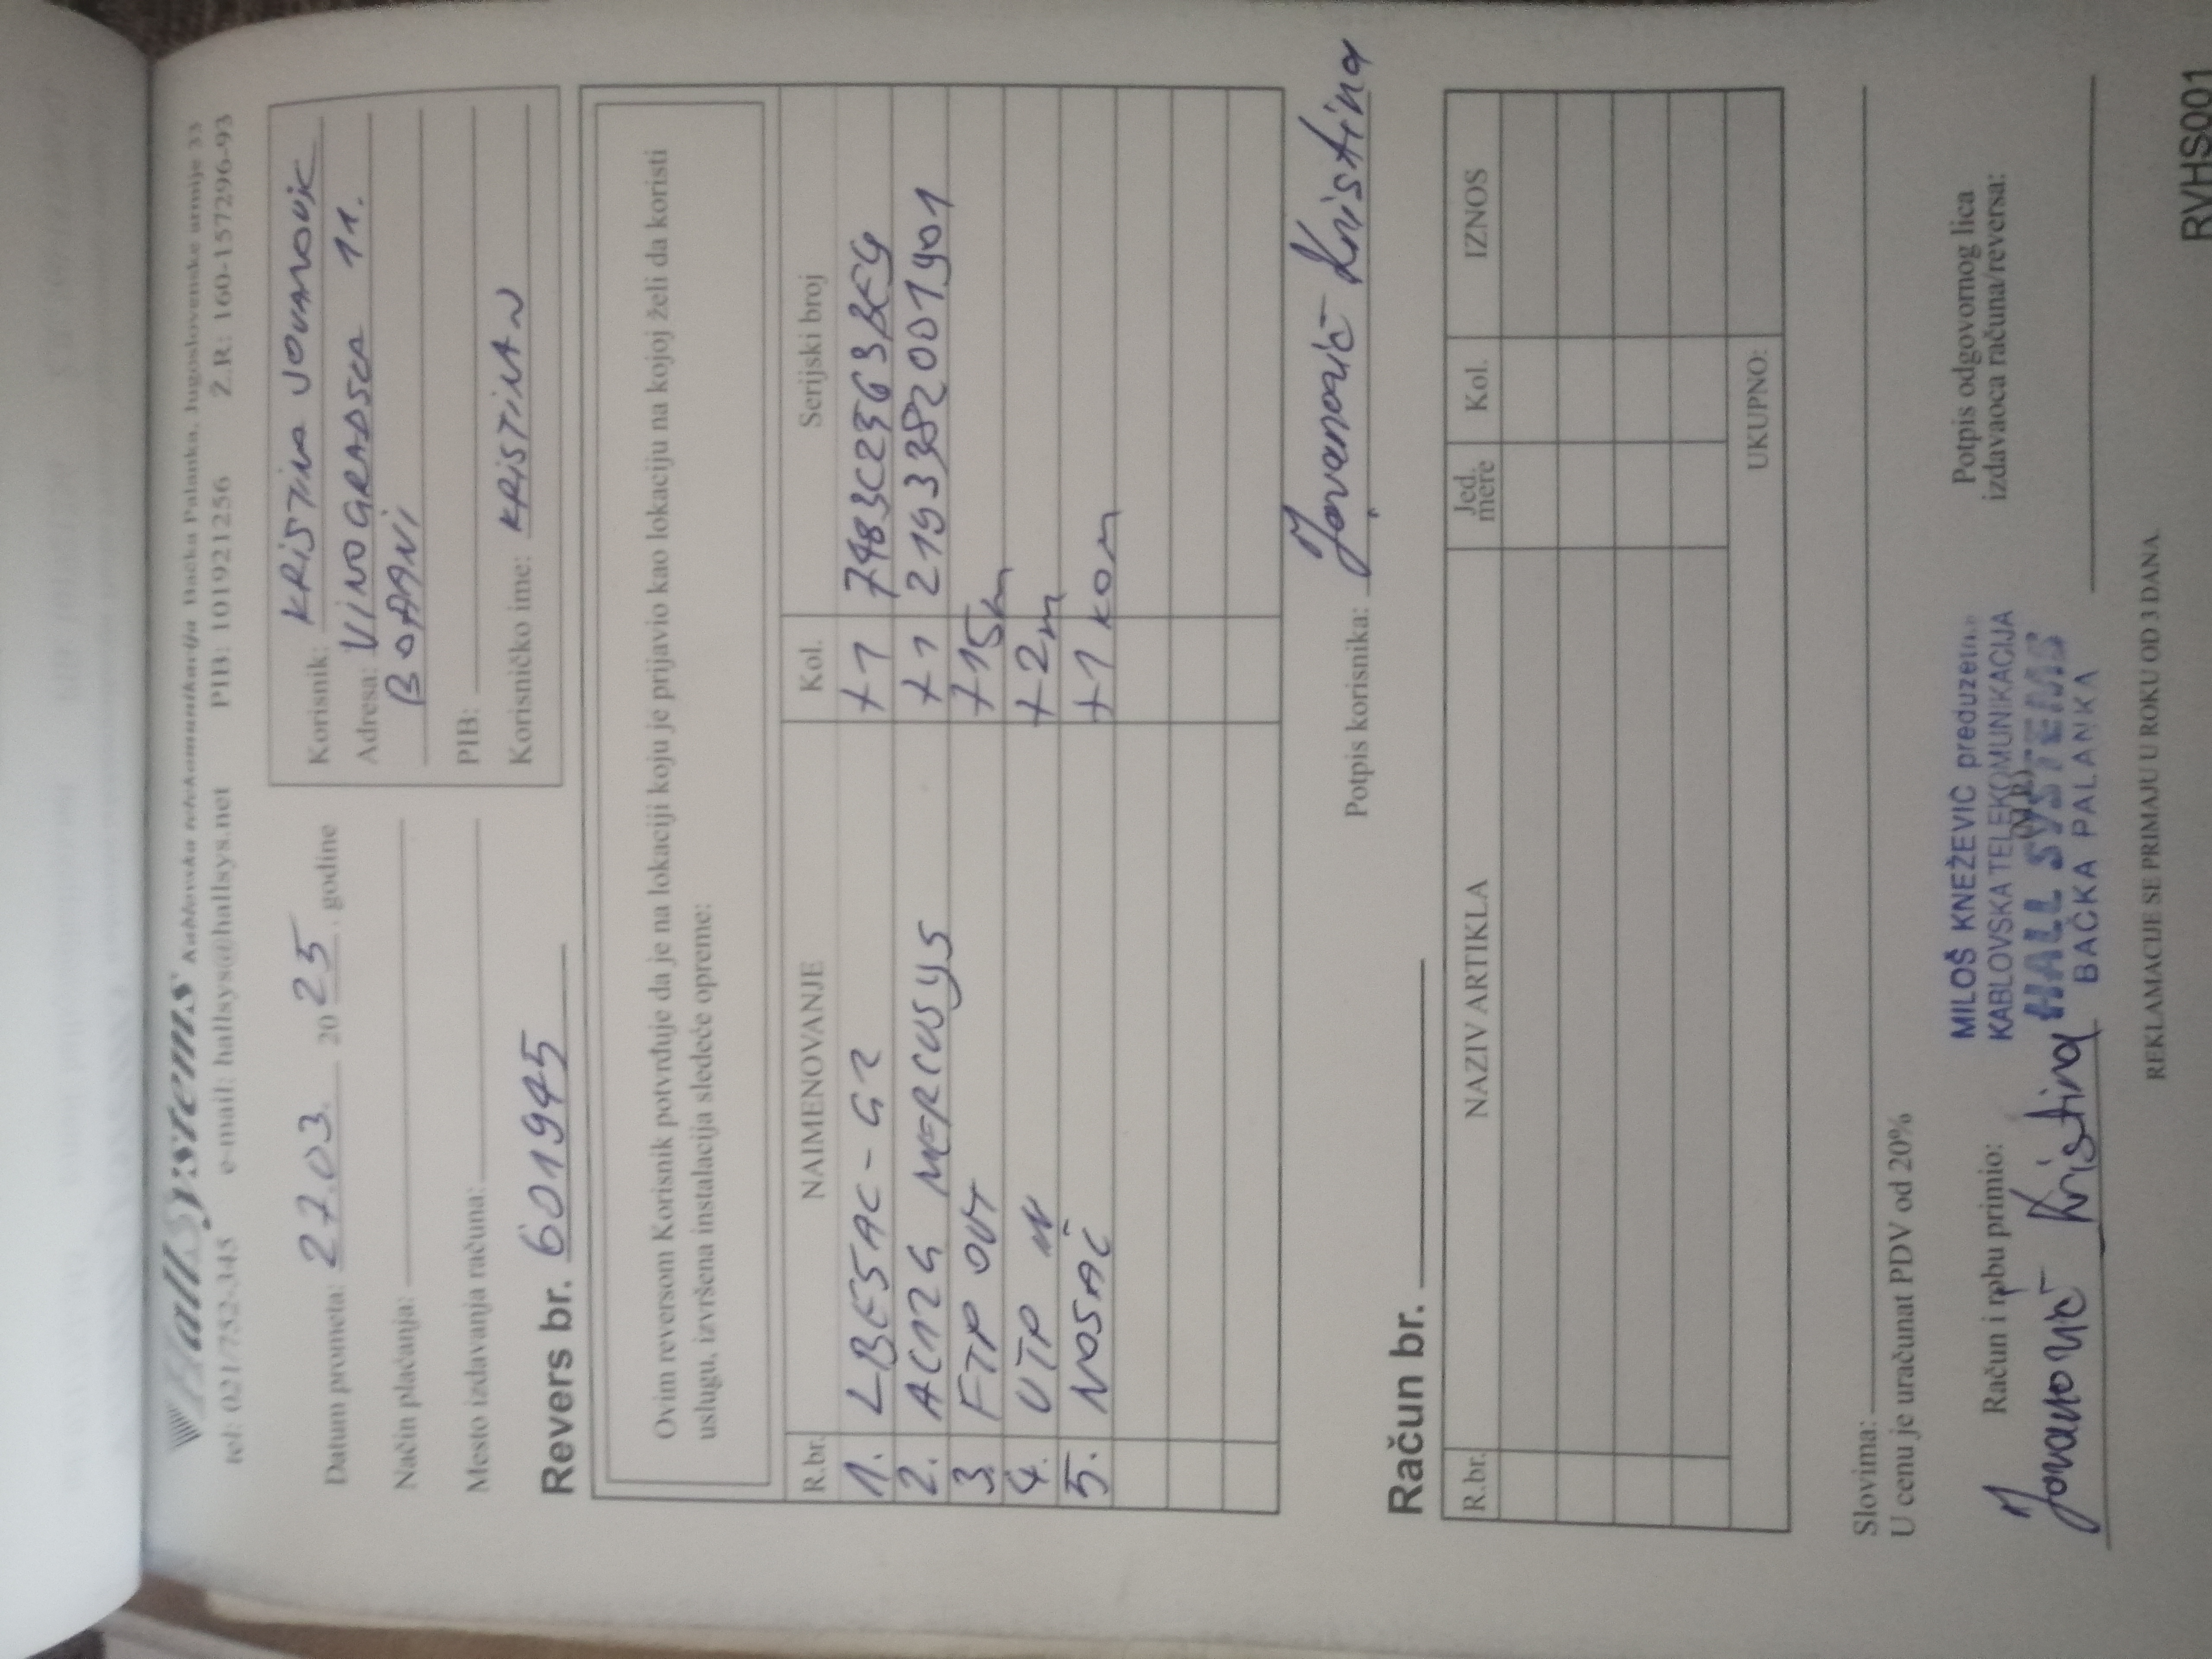 HallSystems Kablovska telekomunikacija Bačka Palanka, Jugoslovenske armije 33
tel: 021/752-345 e-mail: hallsys@hallsys.net PIB: 101921256 Ž.R: 160-157296-93
Datum prometa: 27.03. 2025. godine
Način plaćanja:
Mesto izdavanja računa:
Korisnik: KRISTINA JOVANOVIĆ
Adresa: VINOGRADSCA 11.
BOĐANI
PIB:
Korisničko ime: KRISTINAN
Revers br. 601945
Ovim reversom Korisnik potvrđuje da je na lokaciji koju je prijavio kao lokaciju na kojoj želi da koristi
uslugu, izvršena instalacija sledeće opreme:
R.br. NAIMENOVANJE Kol. Serijski broj
1. LBE5AC-G2 +1
2. AC12G MERCUSYS +1 2193382001901
3. FTP OUT +15m
4. UTP IN +2m
5. NOSAČ +1 kom
Potpis korisnika: Jovanović Kristina
Račun br.
R.br. NAZIV ARTIKLA Jed. mere Kol. IZNOS
UKUPNO:
Slovima:
U cenu je uračunat PDV od 20%
Račun i robu primio:
Jovanović Kristina
MILOŠ KNEŽEVIĆ preduzetnik
KABLOVSKA TELEKOMUNIKACIJA
(M.P.)
HALL SYSTEMS
BAČKA PALANKA
Potpis odgovornog lica
izdavaoca računa/reversa:
REKLAMACIJE SE PRIMAJU U ROKU OD 3 DANA.
RVHS001